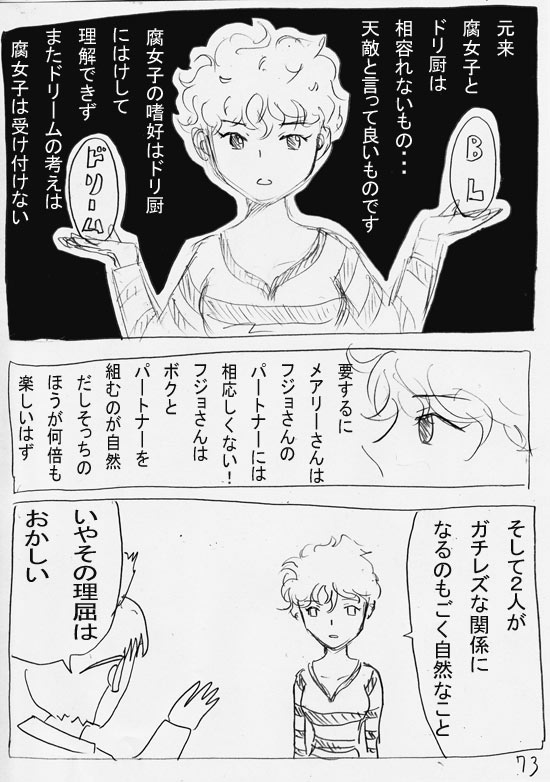 元来
腐女子と
ドリ厨は
相容れないもの・・・
天敵と言って良いものです
BL
腐女子の嗜好はドリ厨
にはけして
理解できず
またドリームの考えは
腐女子は受け付けない
ドリーム
要するに
メアリーさんは
フジョさんの
パートナーには
相応しくない！
フジョさんは
ボクと
パートナーを
組むのが自然
だしそっちの
ほうが何倍も
楽しいはず
そして２人が
ガチレズな関係に
なるのもごく自然なこと
いやその理屈は
おかしい
73